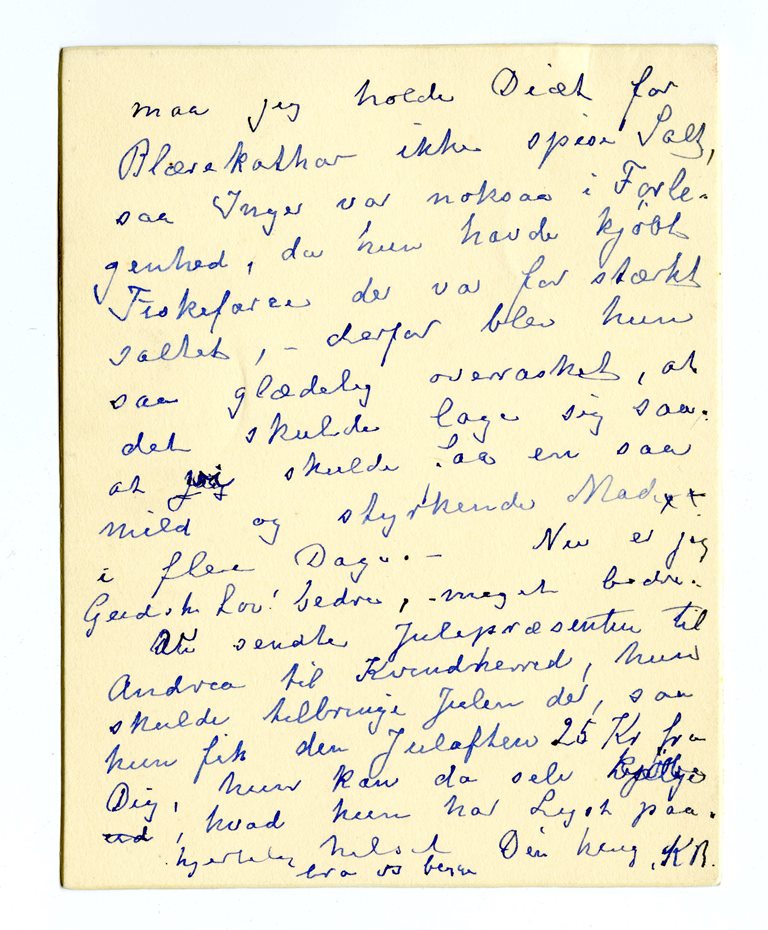 maa jeg holde Diæt for
Blærekathar ikke spise Salt,
saa Inger var noksaa i Forle-
genhed, da hun havde kjöbt
Fiskefarce der var for stærkt
saltet, – derfor blev hun
saa glædelig overrasket, at
det skulde lage sig saa.
at jeg skulde faa en saa
mild og styrkende Mad
i flere Dage. – Nu er jeg
Gudske Lov! bedre, – meget bedre.
Vi sendte Julepræsenten til
Andrea til Kvindherred, hun
skulde tilbringe Julen der, saa
hun fik den Julaften 25 Kr fra
Dig, hun kan da selv kjöbe
, hvad hun har Lyst paa.
hjertelig hilset Din heng. KB.
fra os begge